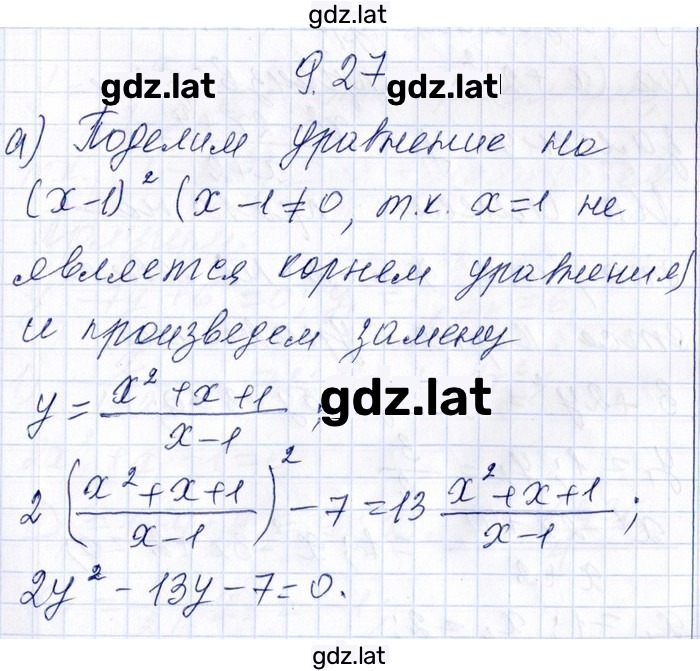 gdz.lat
9.27
gdz.lat gdz.lat
а) Поделим уравнение на
(x-1)² (x-1≠0, т.к. x=1 не
является корнем уравнения)
и произведем замену
y = (x²+x+1)/(x-1) ;
gdz.lat
2((x²+x+1)/(x-1))² - 7 = 13 (x²+x+1)/(x-1) ;
2y² - 13y - 7 = 0.
gdz.lat